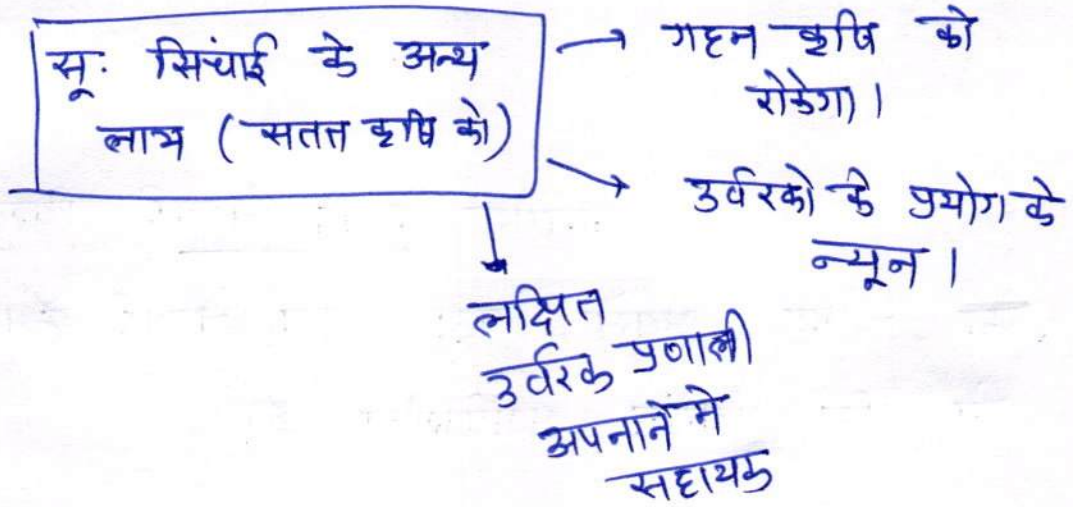 सू. सिंचाई के अन्य
लाभ (सतत कृषि को)
→ गहन कृषि को
रोकेगा।
→ उर्वरको के प्रयोग के
न्यून।
लक्षित
उर्वरक प्रणाली
अपनाने मे
सहायक